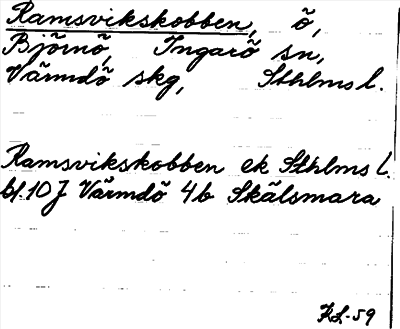 Ramsvikskobben, ö,
Björnö, Ingarö sn,
Värmdö skg, Sthlms l.
Ramsvikskobben ek Sthlms l.
bl. 10 J Värmdö 4b Skälsmara
KL-59